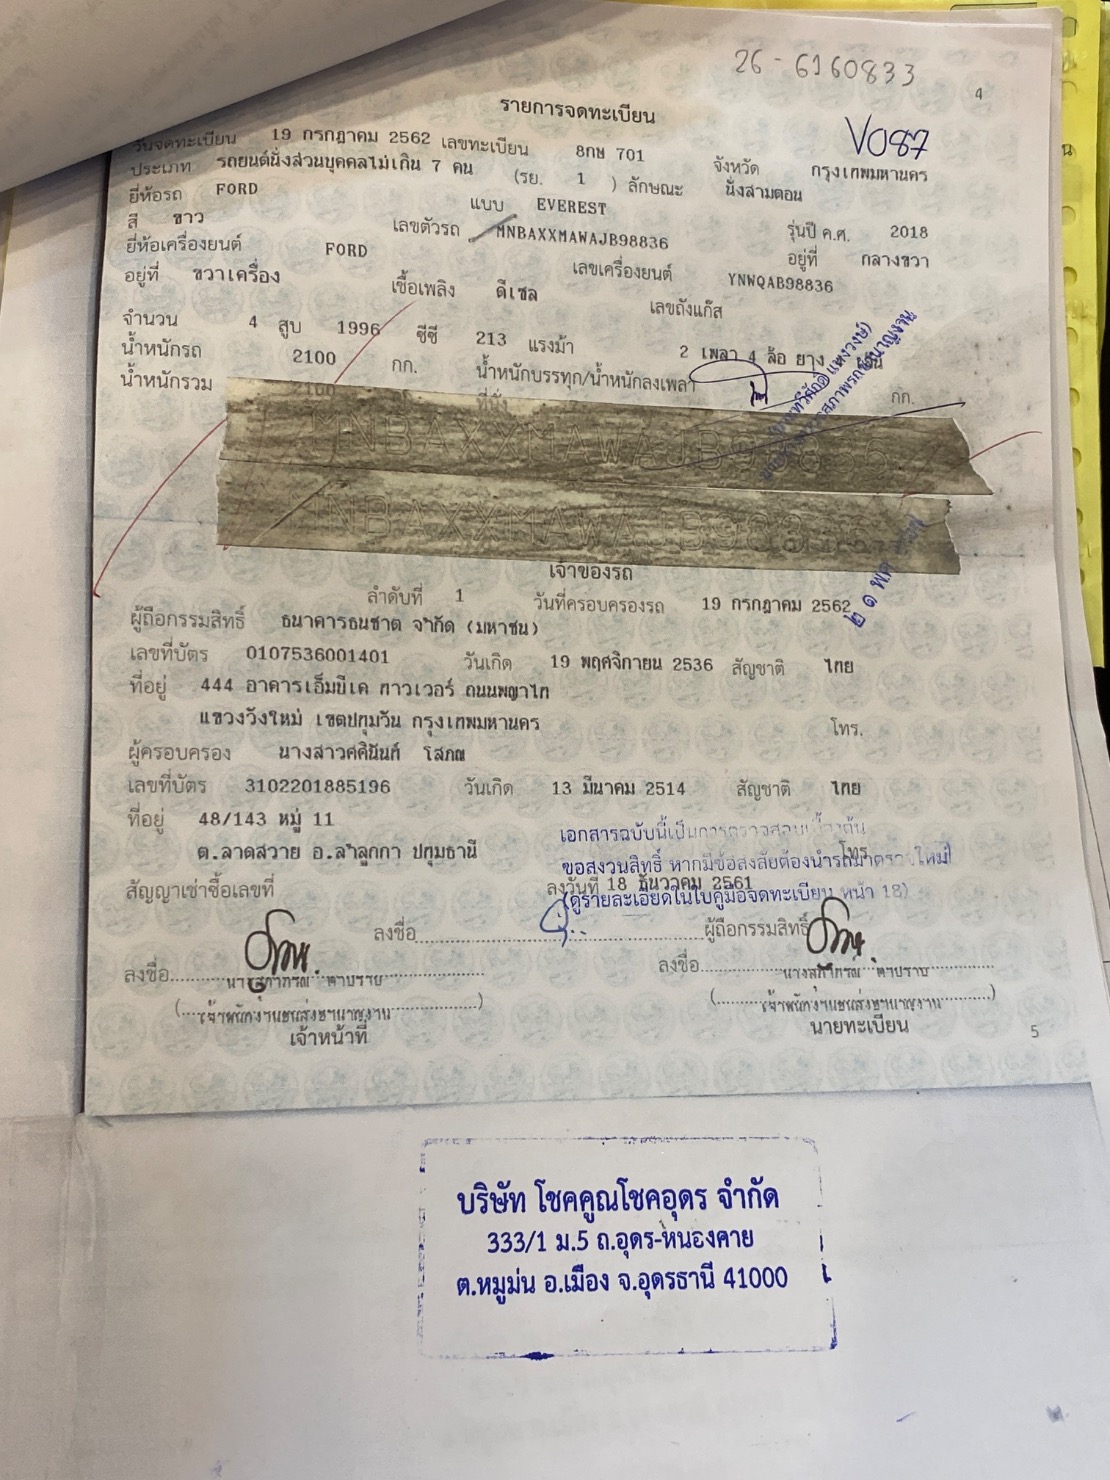 26-6160833
4
รายการจดทะเบียน
V087
วันจดทะเบียน 19 กรกฎาคม 2562 เลขทะเบียน 8กษ 701 จังหวัด กรุงเทพมหานคร
ประเภท รถยนต์นั่งส่วนบุคคลไม่เกิน 7 คน (รย. 1 ) ลักษณะ นั่งสามตอน
ยี่ห้อรถ FORD แบบ EVEREST รุ่นปี ค.ศ. 2018
สี ขาว เลขตัวรถ MNBAXXMAWAJB98836 อยู่ที่ กลางขวา
ยี่ห้อเครื่องยนต์ FORD เลขเครื่องยนต์ YNWQAB98836
อยู่ที่ ขวาเครื่อง เชื้อเพลิง ดีเซล เลขถังแก๊ส
จำนวน 4 สูบ 1996 ซีซี 213 แรงม้า 2 เพลา 4 ล้อ ยาง
น้ำหนักรถ 2100 กก. น้ำหนักบรรทุก/น้ำหนักลงเพลา กก.
น้ำหนักรวม 2100 ที่นั่ง
เจ้าของรถ
ลำดับที่ 1 วันที่ครอบครองรถ 19 กรกฎาคม 2562
ผู้ถือกรรมสิทธิ์ ธนาคารธนชาต จำกัด (มหาชน)
เลขที่บัตร 0107536001401 วันเกิด 19 พฤศจิกายน 2536 สัญชาติ ไทย
ที่อยู่ 444 อาคารเอ็มบีเค ทาวเวอร์ ถนนพญาไท
แขวงวังใหม่ เขตปทุมวัน กรุงเทพมหานคร โทร.
ผู้ครอบครอง นางสาวศศินันท์ โสภณ
เลขที่บัตร 3102201885196 วันเกิด 13 มีนาคม 2514 สัญชาติ ไทย
ที่อยู่ 48/143 หมู่ 11
ต.ลาดสวาย อ.ลำลูกกา ปทุมธานี โทร.
เอกสารฉบับนี้เป็นการตรวจสอบเบื้องต้น
ขอสงวนสิทธิ์ หากมีข้อสงสัยต้องนำรถมาตรวจใหม่
(ดูรายละเอียดในใบคู่มือจดทะเบียน หน้า 18)
สัญญาเช่าซื้อเลขที่ ลงวันที่ 18 ธันวาคม 2561
ลงชื่อ ผู้ถือกรรมสิทธิ์
ลงชื่อ ลงชื่อ
เจ้าพนักงานขนส่งชำนาญงาน เจ้าพนักงานขนส่งชำนาญงาน
เจ้าหน้าที่ นายทะเบียน
5
บริษัท โชคคูณโชคอุดร จำกัด
333/1 ม.5 ถ.อุดร-หนองคาย
ต.หมูม่น อ.เมือง จ.อุดรธานี 41000